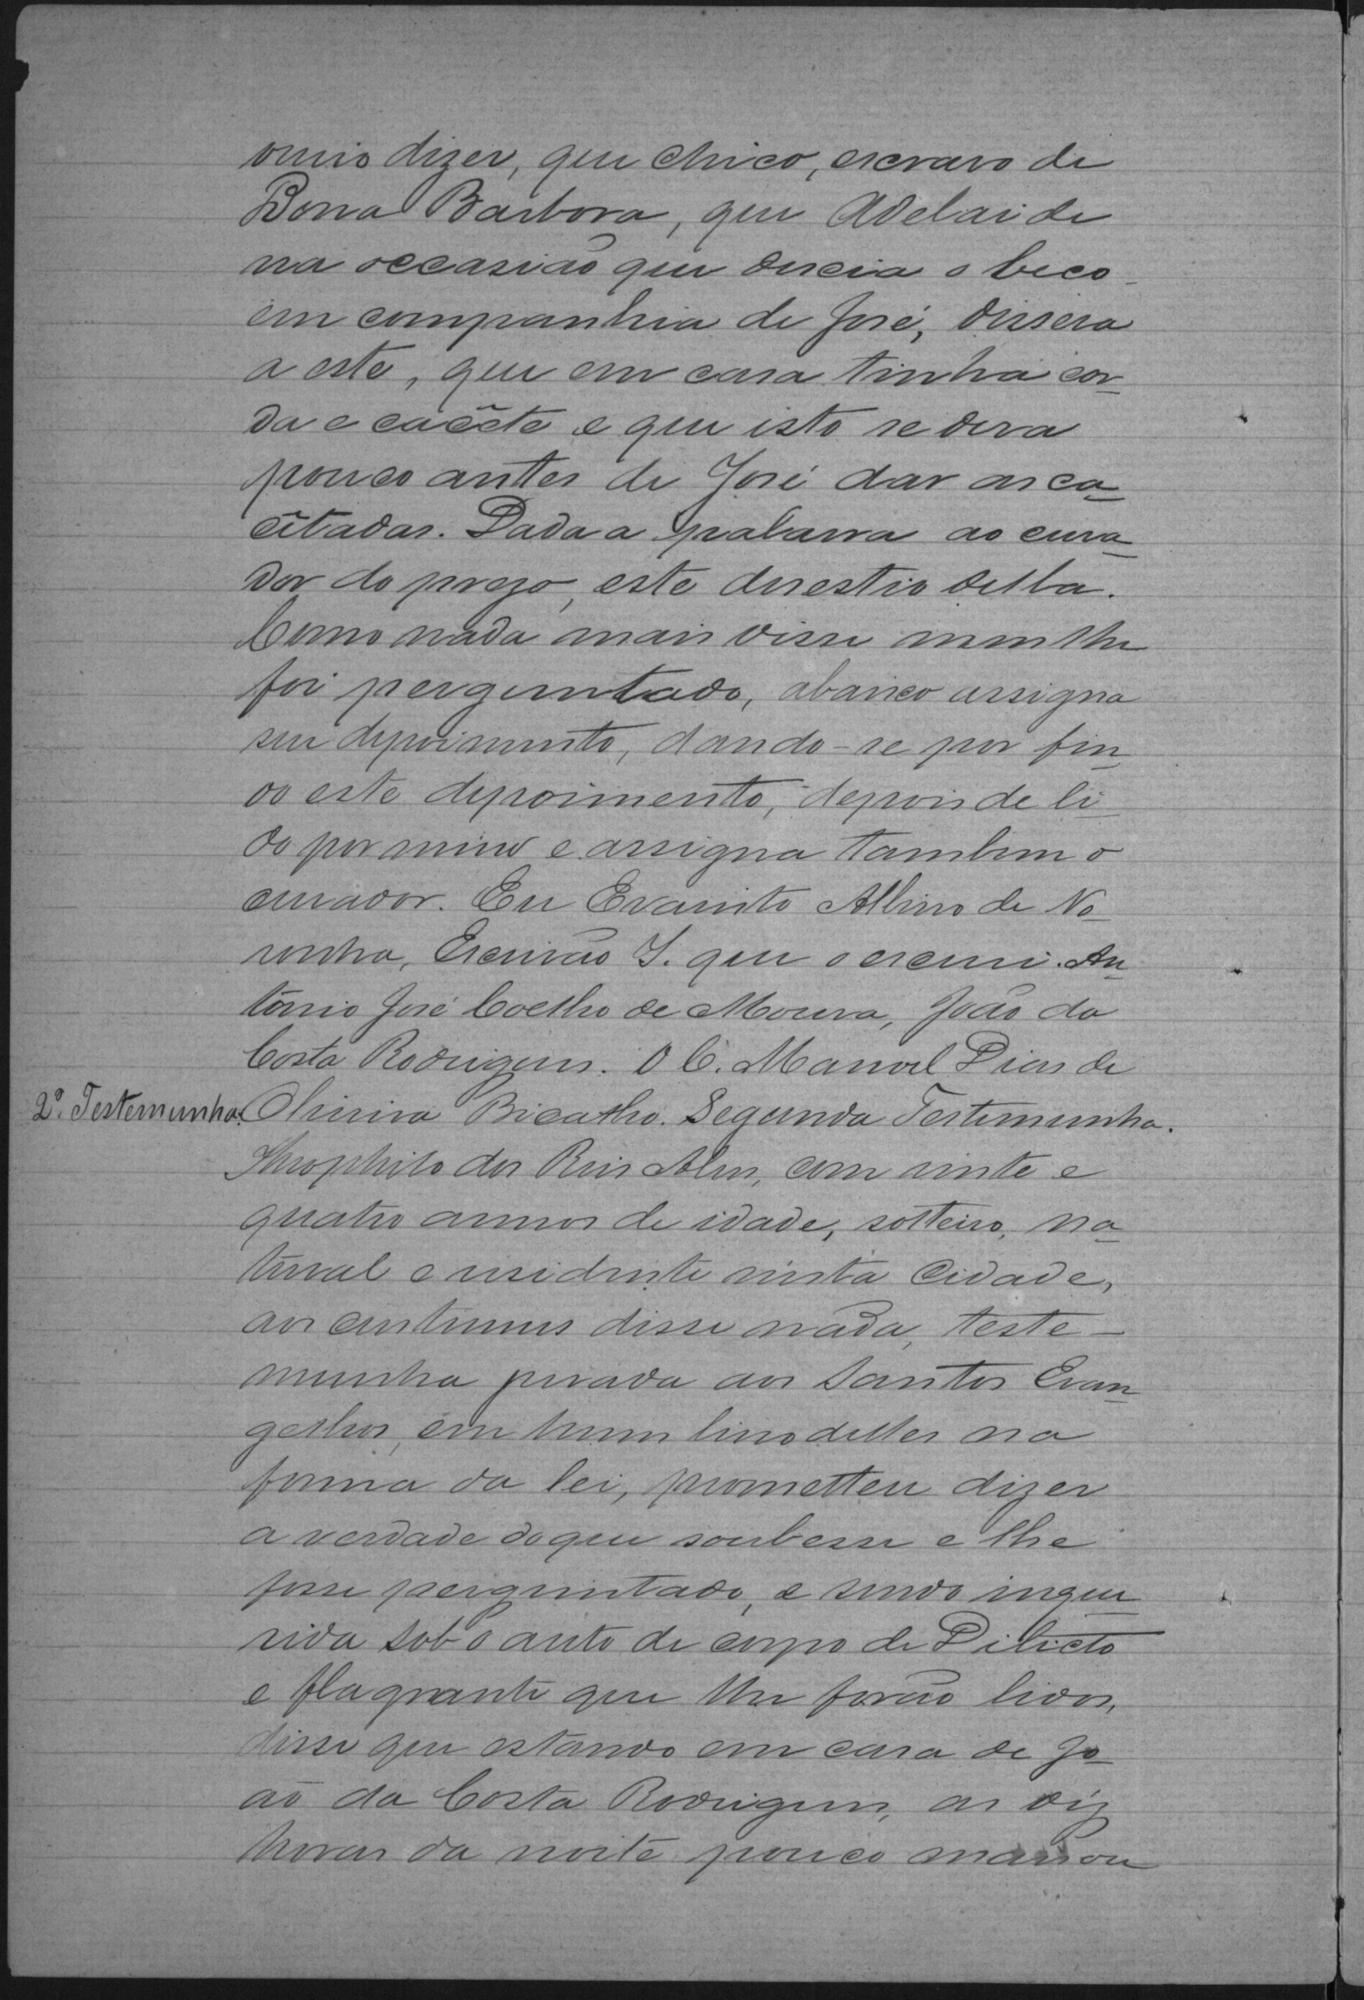 ouvio dizer, que Chico, escravo de
Dona Barbora, que Adelaide
na occasião que descia o beco
em companhia de José, dissera
a este, que em casa tinha cor-
da e cacête e que isto se dera
pouco antes de José dar as ca-
cêtadas. Dada a palavra ao cura-
dor do prezo, este desestio della.
Como nada mais disse nem lhe
foi perguntado, abaixo assigna
seu depoimento, dando-se por fin-
do este depoimento, depois de li-
do por mim e assigna tambem o
curador. Eu Evaristo Albino de No-
ronha, Escrivão I. que o escrevi. An-
tonio José Coelho de Moura, João da
Costa Rodrigues. O C. Manoel Dias de
2ª. Testemunha. Oliveira Bicalho. Segunda Testemunha.
Theophilo dos Reis Alves, com vinte e
quatro annos de idade, solteiro, na-
tural e residente nesta Cidade,
aos custumes disse nada, teste-
munha jurada aos Santos Evan-
gelhos, em hum livro delles na
forma da lei, prometteu dizer
a verdade do que soubesse e lhe
fosse perguntado, e sendo inque-
rida sob o auto de corpo de Dilicto
e flagrante que lhe forão lidos,
disse que estando em casa de Jo-
ão da Costa Rodrigues, as dez
horas da noite pouco mais ou